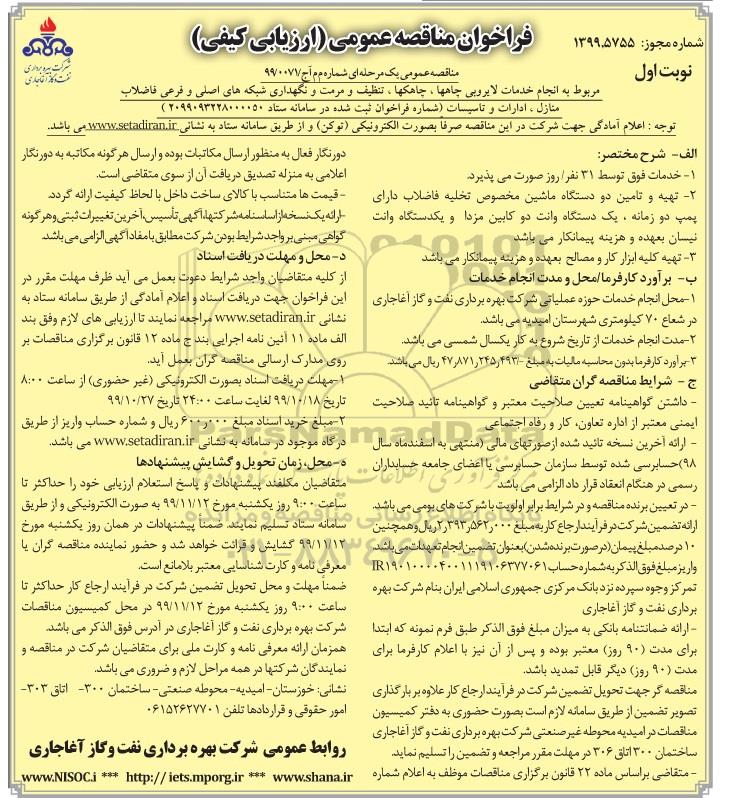 شماره مجوز: ۱۳۹۹،۵۷۵۵
فراخوان مناقصه عمومی (ارزیابی کیفی)
شرکت بهره برداری
نفت و گاز آغاجاری
نوبت اول
مناقصه عمومی یک مرحله‌ای شماره م م آج/۹۹/۰۰۷۱
مربوط به انجام خدمات لایروبی چاهها ، چاهکها ، تنظیف و مرمت و نگهداری شبکه های اصلی و فرعی فاضلاب
منازل ، ادارات و تاسیسات (شماره فراخوان ثبت شده در سامانه ستاد ۲۰۹۹۰۹۳۲۲۸۰۰۰۰۵۰ )
توجه : اعلام آمادگی جهت شرکت در این مناقصه صرفاً بصورت الکترونیکی (توکن) و از طریق سامانه ستاد به نشانی www.setadiran.ir می باشد.
الف- شرح مختصر:
۱- خدمات فوق توسط ۳۱ نفر/ روز صورت می پذیرد.
۲- تهیه و تامین دو دستگاه ماشین مخصوص تخلیه فاضلاب دارای
پمپ دو زمانه ، یک دستگاه وانت دو کابین مزدا و یکدستگاه وانت
نیسان بعهده و هزینه پیمانکار می باشد.
۳- تهیه کلیه ابزار کار و مصالح بعهده و هزینه پیمانکار می باشد
ب- برآورد کارفرما/محل و مدت انجام خدمات
۱-محل انجام خدمات حوزه عملیاتی شرکت بهره برداری نفت و گاز آغاجاری
در شعاع ۷۰ کیلومتری شهرستان امیدیه می باشد.
۲-مدت انجام خدمات از تاریخ شروع به کار یکسال شمسی می باشد.
۳-برآورد کارفرما بدون محاسبه مالیات به مبلغ -/۴۷٫۸۷۱٫۲۴۵٫۴۹۳ ریال می باشد.
ج - شرایط مناقصه گران متقاضی
- داشتن گواهینامه تعیین صلاحیت معتبر و گواهینامه تائید صلاحیت
ایمنی معتبر از اداره تعاون، کار و رفاه اجتماعی
- ارائه آخرین نسخه تائید شده ازصورتهای مالی (منتهی به اسفندماه سال
۹۸)حسابرسی شده توسط سازمان حسابرسی یا اعضای جامعه حسابداران
رسمی در هنگام انعقاد قرار داد الزامی می باشد.
- در تعیین برنده مناقصه و در شرایط برابر اولویت با شرکت های بومی می باشد.
ارائه تضمین شرکت در فرآیند ارجاع کار به مبلغ ۲٫۳۹۳٫۵۶۲٫۰۰۰ ریال و همچنین
۱۰ درصد مبلغ پیمان (در صورت برنده شدن) بعنوان تضمین انجام تعهدات می باشد
واریز مبلغ فوق الذکر به شماره حساب IR۱۹۰۱۰۰۰۰۴۰۰۱۱۱۹۱۰۶۳۷۷۰۶۱
تمرکز وجوه سپرده نزد بانک مرکزی جمهوری اسلامی ایران بنام شرکت بهره
برداری نفت و گاز آغاجاری
- ارائه ضمانتنامه بانکی به میزان مبلغ فوق الذکر طبق فرم نمونه که ابتدا
برای مدت (۹۰ روز) معتبر بوده و پس از آن نیز با اعلام کارفرما برای
مدت (۹۰ روز) دیگر قابل تمدید باشد.
مناقصه گر جهت تحویل تضمین شرکت در فرآیند ارجاع کار علاوه بر بارگذاری
تصویر تضمین از طریق سامانه لازم است بصورت حضوری به دفتر کمیسیون
مناقصات در امیدیه محوطه غیرصنعتی شرکت بهره برداری نفت و گاز آغاجاری
ساختمان ۳۰۰ اتاق ۳۰۶ در مهلت مقرر مراجعه و تضمین را تسلیم نماید.
- متقاضی براساس ماده ۲۲ قانون برگزاری مناقصات موظف به اعلام شماره
دورنگار فعال به منظور ارسال مکاتبات بوده و ارسال هرگونه مکاتبه به دورنگار
اعلامی به منزله تصدیق دریافت آن از سوی متقاضی است.
- قیمت ها متناسب با کالای ساخت داخل با لحاظ کیفیت ارائه گردد.
-ارائه یک نسخه از اساسنامه شرکتها، آگهی تأسیس، آخرین تغییرات ثبتی و هرگونه
گواهی مبنی بر واجد شرایط بودن شرکت مطابق با مفاد آگهی الزامی می باشد.
د- محل و مهلت دریافت اسناد
از کلیه متقاضیان واجد شرایط دعوت بعمل می آید ظرف مهلت مقرر در
این فراخوان جهت دریافت اسناد و اعلام آمادگی از طریق سامانه ستاد به
نشانی www.setadiran.ir مراجعه نمایند تا ارزیابی های لازم وفق بند
الف ماده ۱۱ آئین نامه اجرایی بند ج ماده ۱۲ قانون برگزاری مناقصات بر
روی مدارک ارسالی مناقصه گران بعمل آید.
۱-مهلت دریافت اسناد بصورت الکترونیکی (غیر حضوری) از ساعت ۸:۰۰
تاریخ ۹۹/۱۰/۱۸ لغایت ساعت ۲۴:۰۰ تاریخ ۹۹/۱۰/۲۷
۲-مبلغ خرید اسناد مبلغ ۶۰۰٫۰۰۰ ریال و شماره حساب واریز از طریق
درگاه موجود در سامانه به نشانی www.setadiran.ir می باشد.
ه- محل، زمان تحویل و گشایش پیشنهادها
متقاضیان مکلفند پیشنهادات و پاسخ استعلام ارزیابی خود را حداکثر تا
ساعت ۹:۰۰ روز یکشنبه مورخ ۹۹/۱۱/۱۲ به صورت الکترونیکی و از طریق
سامانه ستاد تسلیم نمایند. ضمناً پیشنهادات در همان روز یکشنبه مورخ
۹۹/۱۱/۱۲ گشایش و قرائت خواهد شد و حضور نماینده مناقصه گران با
معرفی نامه و کارت شناسایی معتبر بلامانع است.
ضمناً مهلت و محل تحویل تضمین شرکت در فرآیند ارجاع کار حداکثر تا
ساعت ۹:۰۰ روز یکشنبه مورخ ۹۹/۱۱/۱۲ در محل کمیسیون مناقصات
شرکت بهره برداری نفت و گاز آغاجاری در آدرس فوق الذکر می باشد.
همزمان ارائه معرفی نامه و کارت ملی برای متقاضیان شرکت در مناقصه و
نمایندگان شرکتها در همه مراحل لازم و ضروری می باشد.
نشانی: خوزستان-امیدیه- محوطه صنعتی- ساختمان ۳۰۰- اتاق ۳۰۳-
امور حقوقی و قراردادها تلفن ۰۶۱۵۲۶۲۷۷۰۱
روابط عمومی شرکت بهره برداری نفت و گاز آغاجاری
www.NISOC.i *** http://iets.mporg.ir *** www.shana.ir